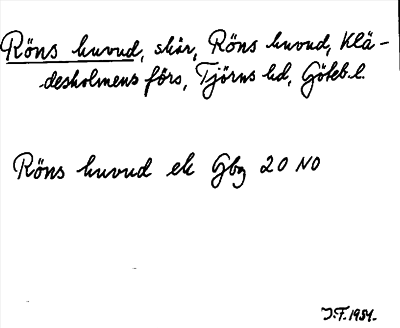 Röns huvud, skär, Röns huvud, Klä-
desholmens förs, Tjörns hd, Göteb. l.
Röns huvud ek Gbg 20 NO
J.F. 1981.